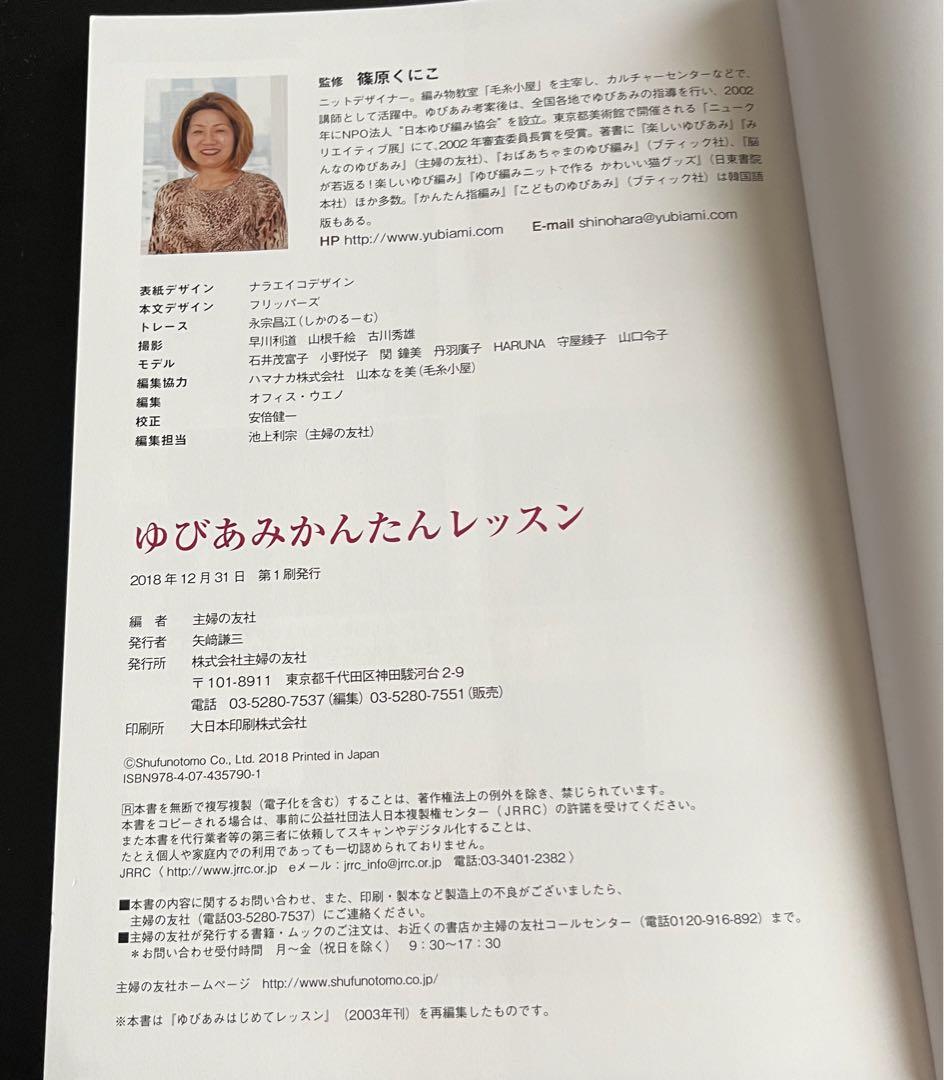 監修 篠原くにこ
ニットデザイナー。編み物教室「毛糸小屋」を主宰し、カルチャーセンターなどで、
講師として活躍中。ゆびあみ考案後は、全国各地でゆびあみの指導を行い、2002
年にNPO法人“日本ゆび編み協会”を設立。東京都美術館で開催される「ニューク
リエイティブ展」にて、2002年審査委員長賞を受賞。著書に『楽しいゆびあみ』『み
んなのゆびあみ』（主婦の友社）、『おばあちゃまのゆび編み』（ブティック社）、『脳
が若返る！楽しいゆび編み』『ゆび編みニットで作る かわいい猫グッズ』（日東書院
本社）ほか多数。『かんたん指編み』『こどものゆびあみ』（ブティック社）は韓国語
版もある。
HP http://www.yubiami.com E-mail shinohara@yubiami.com
表紙デザイン ナラエイコデザイン
本文デザイン フリッパーズ
トレース 永宗昌江（しかのるーむ）
撮影 早川利道 山根千絵 古川秀雄
モデル 石井茂富子 小野悦子 関 鐘美 丹羽廣子 HARUNA 守屋綾子 山口令子
編集協力 ハマナカ株式会社 山本なを美（毛糸小屋）
編集 オフィス・ウエノ
校正 安倍健一
編集担当 池上利宗（主婦の友社）
ゆびあみかんたんレッスン
2018年12月31日 第1刷発行
編 者 主婦の友社
発行者 矢﨑謙三
発行所 株式会社主婦の友社
〒101-8911 東京都千代田区神田駿河台2-9
電話 03-5280-7537（編集） 03-5280-7551（販売）
印刷所 大日本印刷株式会社
©Shufunotomo Co., Ltd. 2018 Printed in Japan
ISBN978-4-07-435790-1
R本書を無断で複写複製（電子化を含む）することは、著作権法上の例外を除き、禁じられています。
本書をコピーされる場合は、事前に公益社団法人日本複製権センター（JRRC）の許諾を受けてください。
また本書を代行業者等の第三者に依頼してスキャンやデジタル化することは、
たとえ個人や家庭内での利用であっても一切認められておりません。
JRRC〈 http://www.jrrc.or.jp eメール：jrrc_info@jrrc.or.jp 電話:03-3401-2382 〉
■本書の内容に関するお問い合わせ、また、印刷・製本など製造上の不良がございましたら、
主婦の友社（電話03-5280-7537）にご連絡ください。
■主婦の友社が発行する書籍・ムックのご注文は、お近くの書店か主婦の友社コールセンター（電話0120-916-892）まで。
＊お問い合わせ受付時間 月〜金（祝日を除く） 9：30〜17：30
主婦の友社ホームページ http://www.shufunotomo.co.jp/
※本書は『ゆびあみはじめてレッスン』（2003年刊）を再編集したものです。